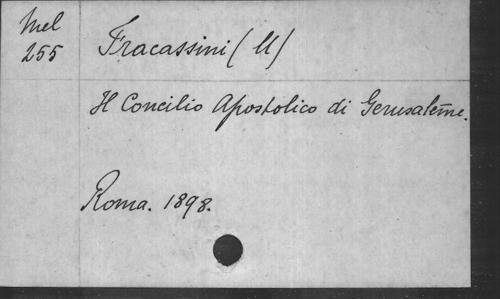 Mel
255
Fracassini (U)
Il Concilio Apostolico di Gerusalem̄e.
Roma. 1898.